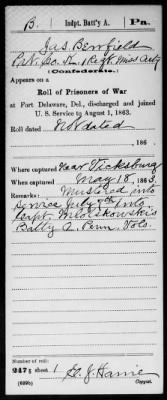 B. Indpt. Batt'y A. Pa.
Jas Benfield
Pvt, Co. 1 Regt Miss Arty
(Confederate.)
Appears on a
Roll of Prisoners of War
at Fort Delaware, Del., discharged and joined
U. S. Service to August 1, 1863.
Roll dated Not dated
, 186 .
Where captured Near Vicksburg
When captured May 18, 1863
Remarks: Mustered into
service July into
Capt. Mlotkowski's
Batty A. Penn. Vols.
Number of roll:
247; sheet 1
(639b)